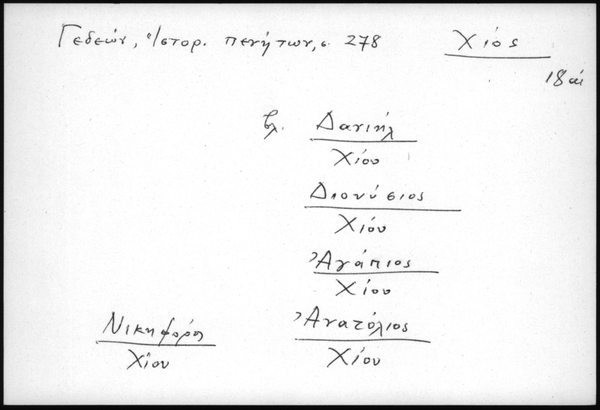 Γεδεών, Ἱστορ. πενήτων, σ. 278 Χίος
18 αἰ
βλ. Δανιήλ
Χίου
Διονύσιος
Χίου
Ἀγάπιος
Χίου
Νικηφόρος Ἀνατόλιος
Χίου Χίου